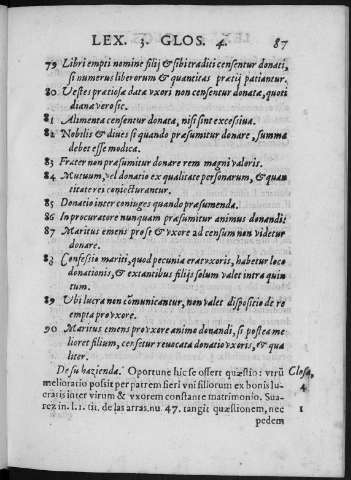 LEX. 3. GLOS. 4. 87
79 Libri empti nomine filij & sibi traditi censentur donati,
si numerus liberorum & quantitas prætij patiantur.
80 Uestes prætiosæ data vxori non censentur donatæ, quoti
dianæ vero sic.
81 Alimenta censentur donata, nisi sint excessiua.
82 Nobilis & diues si quando præsumitur donare, summa
debet esse modica.
83 Frater non præsumitur donare rem magni valoris.
84 Mutuum, vel donatio ex qualitate personarum, & quan
titate res coniecturantur.
85 Donatio inter coniuges quando præsumenda.
86 In procuratore nunquam præsumitur animus donandi:
87 Maritus emens pro se & vxore ad censum non videtur
donare.
88 Confessio mariti, quod pecunia erat vxoris, habetur loco
donationis, & extantibus filijs solum valet intra quin
tum.
89 Ubi lucra non cõmunicantur, non valet dispositio de re
empta pro vxore.
90 Maritus emens pro vxore animo donandi, si postea me
lioret filium, censetur reuocata donatio vxoris, & qua
liter.
De su hazienda. Oportune hic se offert quæstio: vtrũ Closa,
melioratio possit per patrem fieri vni filiorum ex bonis lu- 4
cratis inter virum & vxorem constante matrimonio. Sua-
rez in l. 1. tit. de las arras. nu. 47. tangit quæstionem, nec 1
pedem